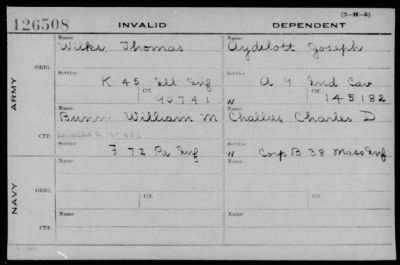 (3-H-5)
126508 INVALID DEPENDENT
Name Name
Wilke Thomas Aydelott Joseph
ORIG. Service Service
K 45 Ill Inf A 9 Ind Cav
Ctf. Ctf.
90741 W 145182
ARMY
Name Name
Bunn William M Challies Charles D
CTF. Service Service
F 72 Pa Inf W Corp B 38 Mass Inf
Name Name
ORIG.
Service Ctf. Service Ctf.
NAVY
Name Name
CTF.
Service Service